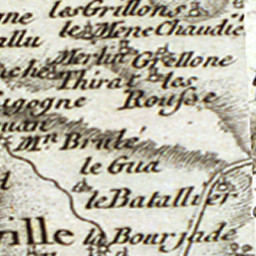 les Grillons
le Mene Chaudié
allu
Merlin Grellone
Thirat las
Rousse
gogne
Mⁿ Brulé
le Gua
le Batallier
ville
la Bourjade